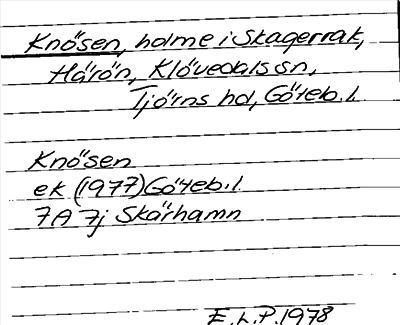 Knösen, holme i Skagerrak,
Härön, Klövedals sn,
Tjörns hd, Göteb. l.
Knösen
ek (1977) Göteb. l.
7A 7j Skärhamn
E. L. P. 1978